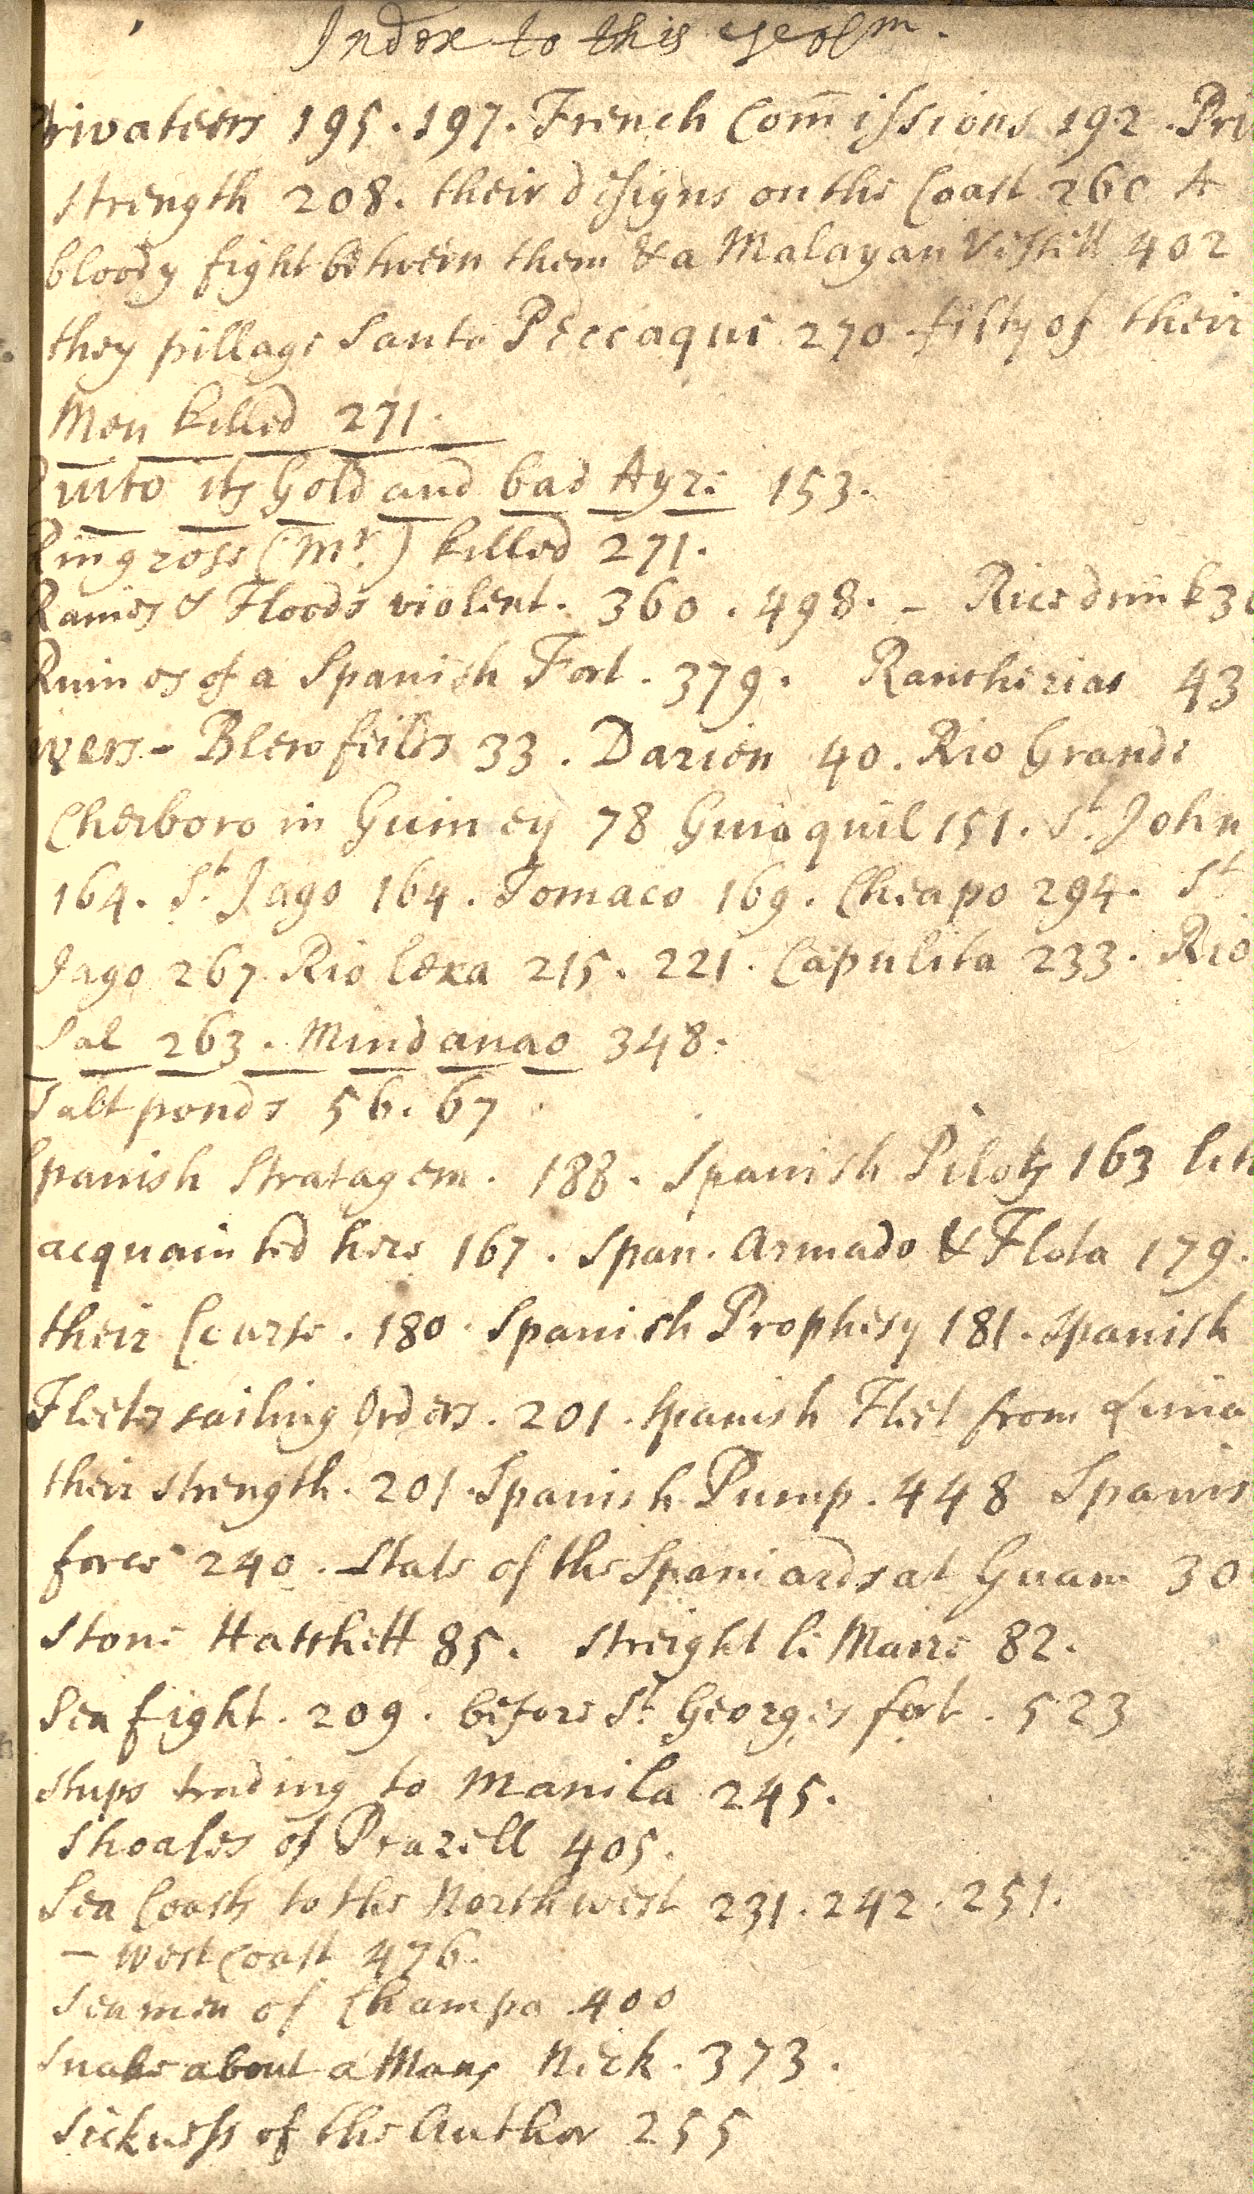 Index to this Volm.
Privateers 195. 197. French Com̄issions 192. Pri
strength 208. their designs on the Coast 260 A
bloody fight between them & a Malayan Vessell 402
they pillage Santa Peccaque 270 fifty of their
Men killed 271.
Quito its Gold and bad Ayre 153.
Ringrose (Mr.) killed 271.
Raines & Floods violent. 360. 498. – Rice drink 3
Ruines of a Spanish Fort. 379. Rancherias 43
ivers – Blewfeilds 33. Darien 40. Rio Grande
Cherboro in Guiney 78 Guiaquil 151. St. John
164. St. Jago 164. Tomaco 169. Cheapo 294. St
Jago 267. Rio Lexa 215. 221. Capulita 233. Rio
Sal 263. Mindanao 348.
Salt ponds 56. 67
Spanish Stratagem. 188. Spanish Pilots 163
acquainted here 167. Span. Armado & Flota 179.
their Course. 180. Spanish Prophesy 181. Spanish
Fleets sailing Orders. 201. Spanish Fleet from Lima
their strength. 201. Spanish Pump. 448 Spanis
force 240. State of the Spaniards at Guam 30
Stone Hatchett 85. Streight le Maire 82.
Sea fight. 209. before St. Georges fort. 523
Ships trading to Manila 245.
Shoales of Prazell 405.
Sea Coasts to the Northwest 231. 242. 251.
– West Coast 476.
Seamen of Champa 400
Snake about a Mans Neck. 373.
Sickness of the Author 255